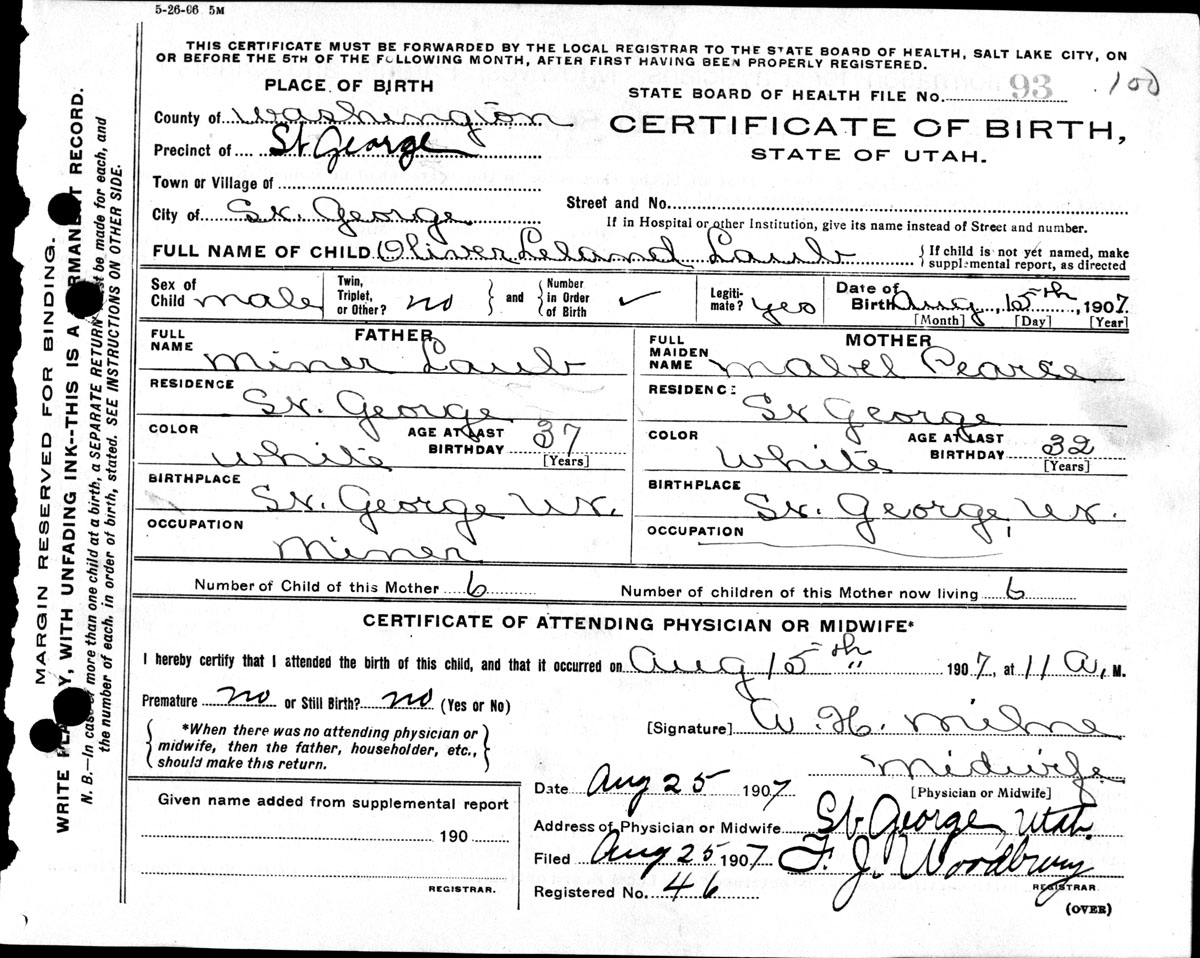 5-26-06 5M
THIS CERTIFICATE MUST BE FORWARDED BY THE LOCAL REGISTRAR TO THE STATE BOARD OF HEALTH, SALT LAKE CITY, ON
OR BEFORE THE 5TH OF THE FOLLOWING MONTH, AFTER FIRST HAVING BEEN PROPERLY REGISTERED.
PLACE OF BIRTH
STATE BOARD OF HEALTH FILE No. 93 100
County of Washington
CERTIFICATE OF BIRTH,
Precinct of St George
STATE OF UTAH.
Town or Village of
Street and No.
City of St. George
If in Hospital or other Institution, give its name instead of Street and number.
FULL NAME OF CHILD Oliver Leland Laub { If child is not yet named, make supplemental report, as directed
Sex of Child male Twin, Triplet, or Other? no } and { Number in Order of Birth ✓ Legitimate? yes Date of Birth Aug, 15th, 1907
[Month] [Day] [Year]
FATHER
FULL NAME Miner Laub
RESIDENCE
St. George
COLOR White AGE AT LAST BIRTHDAY 37
[Years]
BIRTHPLACE
St. George Ut.
OCCUPATION
Miner
MOTHER
FULL MAIDEN NAME Mabel Pearce
RESIDENCE
St George
COLOR White AGE AT LAST BIRTHDAY 32
[Years]
BIRTHPLACE
St. George, Ut.
OCCUPATION
Number of Child of this Mother 6 Number of children of this Mother now living 6
CERTIFICATE OF ATTENDING PHYSICIAN OR MIDWIFE*
I hereby certify that I attended the birth of this child, and that it occurred on Aug 15th " 1907, at 11 A, M.
Premature no or Still Birth? no (Yes or No)
[Signature] A. H. Milne
{ *When there was no attending physician or
midwife, then the father, householder, etc.,
should make this return. }
Midwife
[Physician or Midwife]
Date Aug 25 1907
Address of Physician or Midwife St. George, Utah.
Filed Aug 25 1907 F. J. Woodbury
REGISTRAR
Registered No. 46
(OVER)
Given name added from supplemental report
190
REGISTRAR.
MARGIN RESERVED FOR BINDING.
WRITE Y, WITH UNFADING INK--THIS IS A RMANENT RECORD.
N. B.—In case more than one child at a birth, a SEPARATE RETURN must be made for each, and
the number of each, in order of birth, stated. SEE INSTRUCTIONS ON OTHER SIDE.